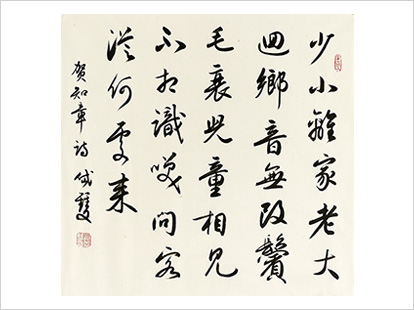 少小離家老大
迴鄉音無改鬢
毛衰兒童相見
不相識咲問客
從何處來
賀知章詩